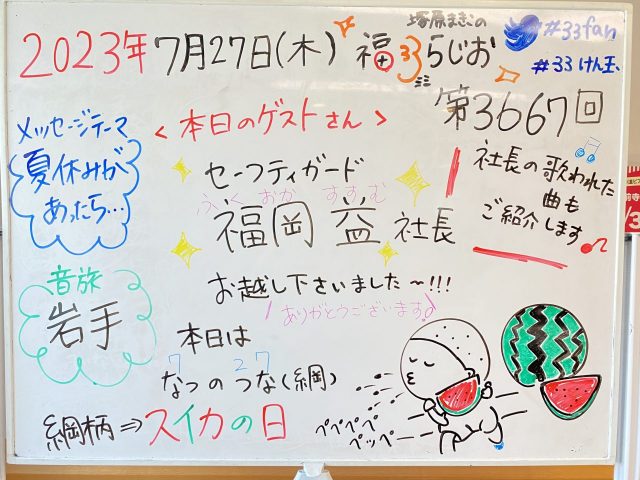 塚原まきこの
2023年7月27日(木) 福33らじお
#33fan
#33けん玉
第3667回
メッセージテーマ
夏休みが
あったら…
<本日のゲストさん>
セーフティガード
ふくおか すすむ
福岡 益 社長
お越し下さいました～!!!
ありがとうございます♪
社長の歌われた
曲も
ご紹介します
音旅
岩手
本日は
7 27
なつのつな(綱)
綱柄⇒スイカの日
ペペペペ
ペッペー